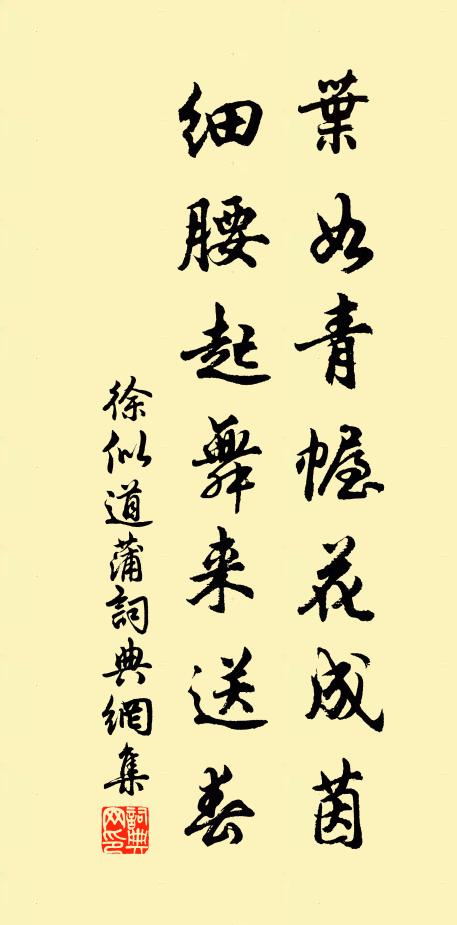 葉如青幄花成茵
細腰起舞來送春
徐似道蒲詞典網集
詞典網印